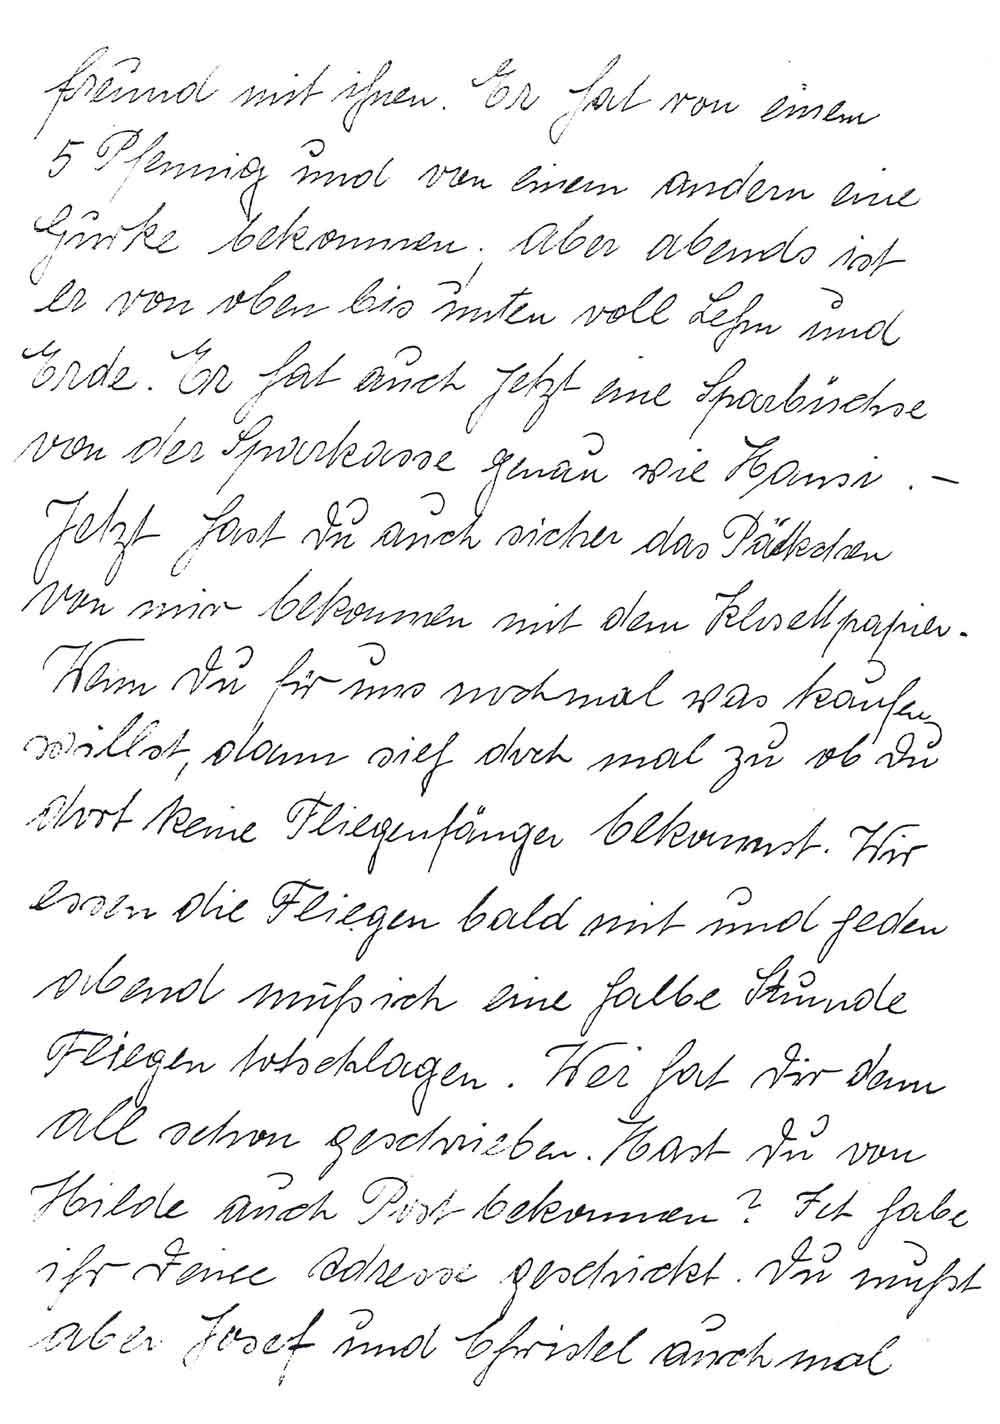 freund mit ihnen. Er hat von einem
5 Pfennig und von einem andern eine
Gurke bekommen, Aber abends ist
er von oben bis unten voll Lehm und
Erde. Er hat auch jetzt eine Sparbüchse
von der Sparkasse genau wie Hansi. –
Jetzt hast Du auch sicher das Päckchen
von mir bekommen mit dem Klosettpapier.
Wenn Du für uns nochmal was kaufen
willst, dann sieh doch mal zu ob Du
dort keine Fliegenfänger bekommst. Wir
essen die Fliegen bald mit und jeden
abend muß ich eine halbe Stunde
Fliegen totschlagen. Wer hat Dir denn
all schon geschrieben. Hast Du von
Hilde auch Post bekommen? Ich habe
ihr Deine Adresse geschickt. Du mußt
aber Josef und Christel auch mal